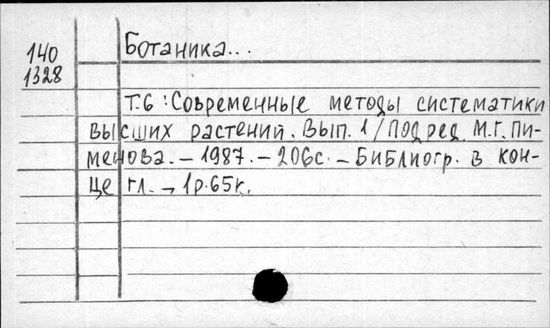 140
1328
Ботаника...
Т.6: Современные методы систематики
высших растений. Вып. 1/Под ред. М.Г. Пи-
менова. – 1987. – 206с. – Библиогр. в кон-
це гл. – 1р.65к.